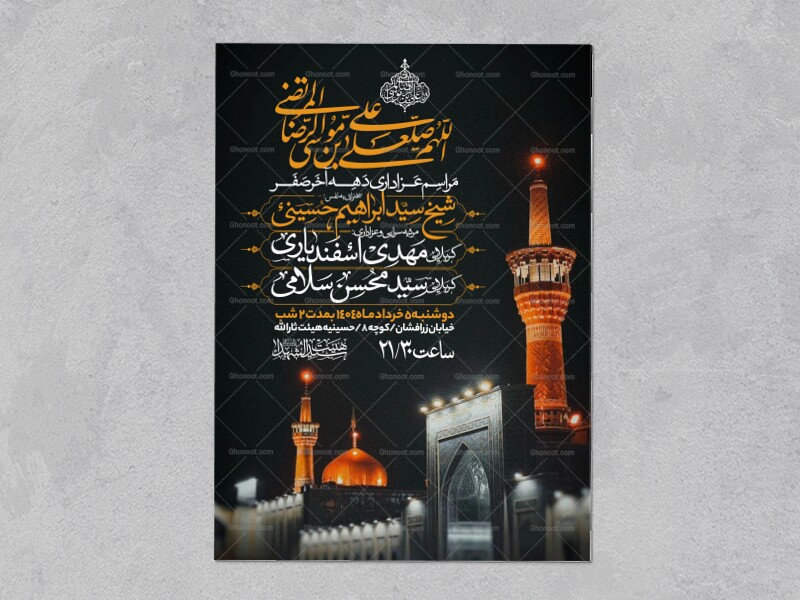 اللهم صل علی علی بن موسی الرضا المرتضی
مراسم عزاداری دهه آخر صفر
سخنرانی به نفس:
شیخ سید ابراهیم حسینی
مرثیه سرایی و عزاداری:
کربلایی مهدی اسفندیاری
کربلایی سید محسن سلامی
دوشنبه ۵ خرداد ماه ۱۴۰۴ بمدت ۲ شب
خیابان زرافشان / کوچه ۸ / حسینیه هیئت ثارالله
ساعت ۲۱/۳۰
هیئت سیدالشهدا
Ghonoot.com